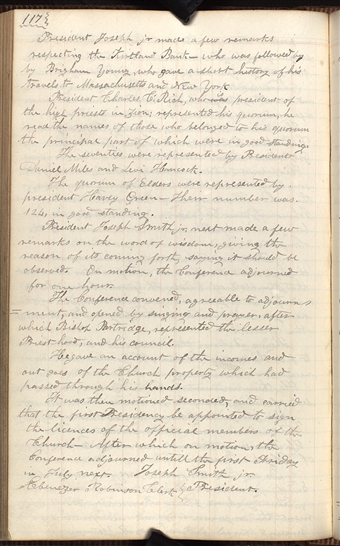 117½
President Joseph jr made a few remarks
respecting the Kirtland Bank who was followed by
by Brigham Young, who gave a short history of his
travels to Massachusetts and New York
President Charles C. Rich, who was president of
the high priests in Zion, represented his quorum, he
read the names of those who belonged to his quorum
the principal part of which were in good standing.
The seventies were represented by
Daniel Miles and Levi Hancock.
The quorum of Elders were represented by
president Harvey Green Their number was
124, in good standing.
President Joseph Smith jr, next made a few
remarks on the word of wisdom, giving the
reason of its coming forth, saying it should be
observed. On motion, the Conference adjourned
for one hour.
The Conference convened, agreeable to adjourn=
=ment, and opened by singing and prayer, after
which Bishop Partridge, represented the lesser
Priesthood, and his council.
He gave an account of the incomes and
out goes of the Church property which had
passed through his hands.
It was then motioned seconded, and carried
that the first Presidency be appointed to sign
the licences of the official members of the
Church. After which on motion, the
Conference adjourned untill the first Friday
in July next. Joseph Smith jr.
Ebenezer Robinson Clerk President.